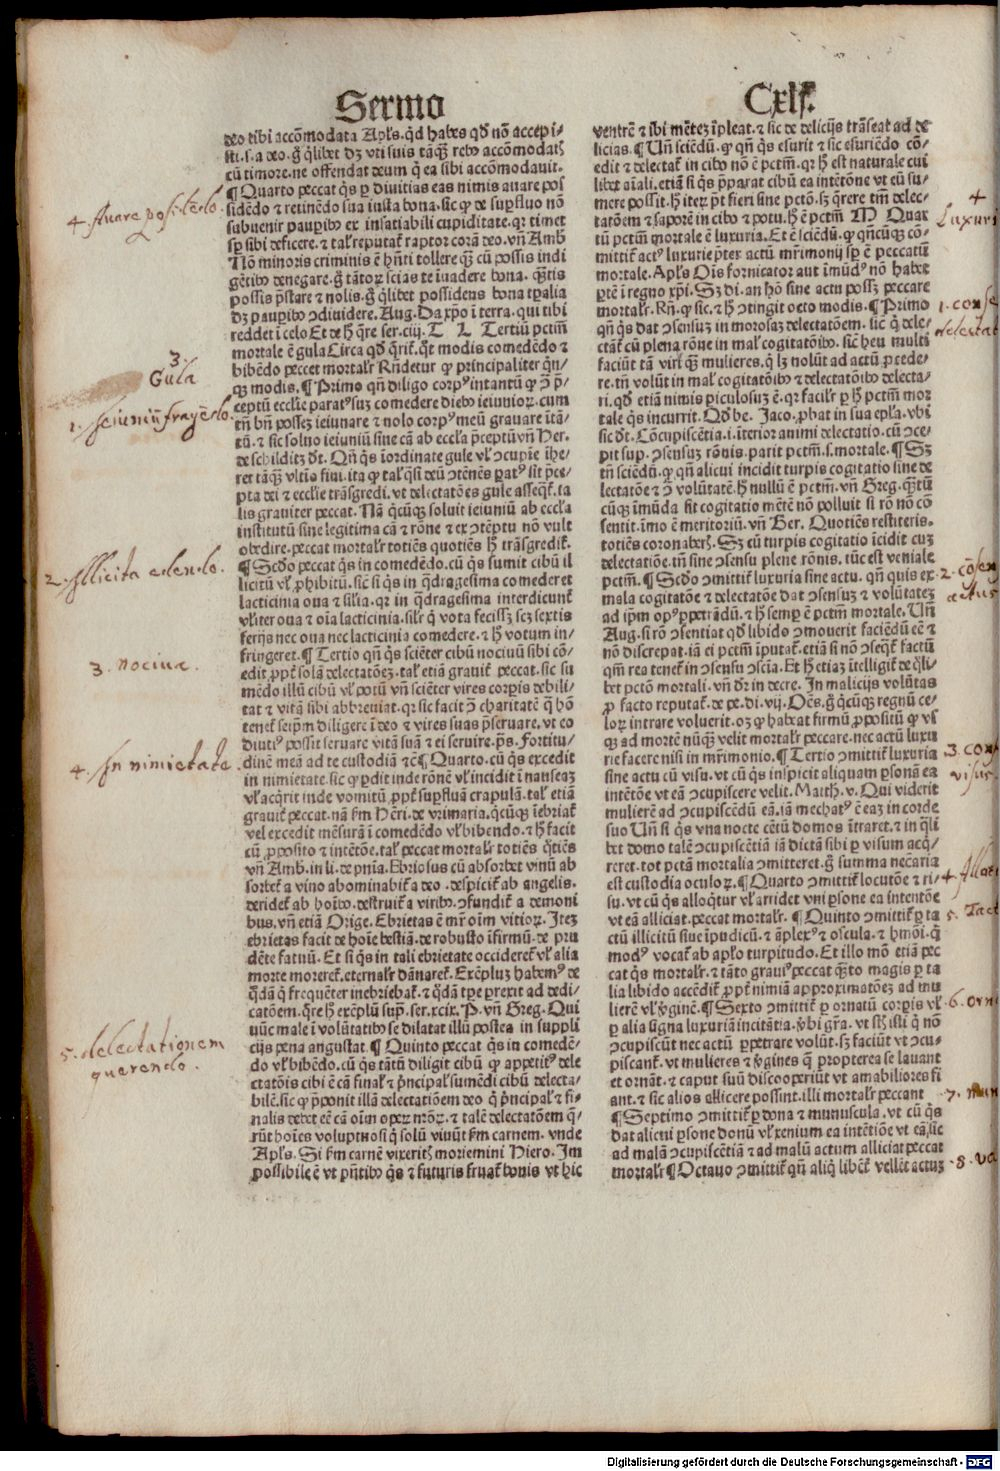 Sermo Cxlj.
deo tibi accōmodata Apl's. qd habes qd nō accepi-
sti. s. a deo. g̊ qlibet dz vti suis tāqz rebo accōmodatis
cū timore. ne offendat deum q ea sibi accōmodauit.
¶ Quarto peccat qs ꝑ diuitias eas nimis auare pos
sidēdo ⁊ retinēdo sua iusta bona. sic ꝙ de suꝑfluo nō
subuenir pauꝑibo ex insatiabili cupiditate. qr timet
sꝑ sibi deficere. ⁊ talis reputat raptor corā deo. vn̄ Amb̄
Nō minoris criminis ē hn̄ti tollere qz̄ cū possis indi
gētibo denegare. g̊ tātoꝝ scias te īuadere bona. qz̄tis
possis p̄stare ⁊ nolis. g̊ qlibet possidens bona tꝑalia
dz pauꝑibo ꝯdiuidere. Aug. Da xp̄o ī terra. qui tibi
reddet ī celo Et de h̄ qre ser. ciij. T L Tertiū pctm̄
mortale ē gula Circa qd qrit. qt modis comedēdo ⁊
bibēdo peccet mortalr Rn̄detur ꝙ principaliter qn̄-
qz modis. ¶ Primo qn̄ diligo corpꝰ intantū ꝙ ꝯ p̄-
ceptū ecclie paratꝰ suz comedere diebo ieiunioꝝ. cum
tn̄ bn̄ possez ieiunare ⁊ nolo corpꝰ meū grauare ītā-
tū. ⁊ sic soluo ieiuniū sine cā ab eccl'a p̄ceptū vn̄ Her.
de schilditz dt. Qn̄ qs īordinate gule vl' ꝯcupie īhe-
ret tāqz vltīo fini. ita ꝙ talis qsi deū ꝯtēnēs ꝑatꝰ sit p̄ce-
pta dei ⁊ ecclie trāsgredi. vt delectatōes gule asseqt. ta
lis grauiter peccat. Nā qcūqz soluit ieiuniū ab eccl'a
institutū sine legitima cā ⁊ rōne ⁊ ex ꝯtēptu nō vult
obedire. peccat mortalr totiēs quotiēs h̄ trāsgredit.
¶ Scdo peccat qs in comedēdo. cū qs sumit cibū il
licitū vl' ꝓhibitū. sic si qs in qdragesima comederet
lacticinia oua ⁊ sil'ia. qr in qdragesima interdicunt
vl'iter oua ⁊ oīa lacticinia. sil'r q vota fecissz sez sextis
ferijs nec oua nec lacticinia comedere. ⁊ h̄ votum in-
fringeret. ¶ Tertio qn̄ qs sciēter cibū nociuū sibi cō-
edit. ꝓpt solā delectatōez. talis etiā grauit peccat. sic su
mēdo illū cibū vl' potū vn̄ sciēter vires corꝑis debili-
tat ⁊ vitā sibi abbreuiat. qr sic facit ꝯ charitatē q hō
tenet seip̄m diligere ī deo ⁊ vires suas p̄seruare. vt eo
diutiꝰ possit seruare vitā suā ⁊ ei seruire. ps̄. Fortitu-
dinē meā ad te custodiā ⁊c̄ ¶ Quarto. cū qs excedit
in nimietate. sic ꝙ ꝑdit inde rōnē vl' incidit ī nauseaz
vl' acqrit inde vomitū. ꝓpt suꝑfluā crapulā. talis etiā
grauit peccat. nā ẜm Hēri. de vrimaria. qcūqz īebriat
vel excedit mēsurā ī comedēdo vl' bibendo. ⁊ h̄ facit
cū ꝓposito ⁊ intētōe. talis peccat mortalr totiēs qtiēs
vn̄ Amb. in li. de pn̄ia. Ebriosus cū absorbet vinū ab
sorbet a vino abominabit a deo. despicit ab angelis.
deridet ab hoībo. destruit a virtutibo. ꝯfundit a demoni
bus. vn̄ etiā Orige. Ebrietas ē mr̄ oīm vitioꝝ. Itez
ebrietas facit de hoīe bestiā. de robusto īfirmū. de pru
dēte fatuū. Et si qs in tali ebrietate occideret vl' alia
morte moreret. eternalr dānaret. Exēpluz habemꝰ de
qdā q frequēter inebriebat. ⁊ qdā tꝑe ꝑrexit ad dedi-
catōem. qre h̄ exēplū sup̄. ser. xcix. P. vn̄ Greg. Qui
nūc male ī volūtatibo se dilatat illū postea in suppli
cijs pena angustat. ¶ Quinto peccat qs in comedē-
do vl' bibēdo. cū qs tātū diligit cibū ꝙ appetitꝰ dele
ctatōis cibi ē cā finalis ⁊ p̄ncipalis sumēdi cibū delecta-
bilē. sic ꝙ p̄ponit illā delectatiōem deo q p̄ncipalis ⁊ fi-
nalis debet eē cā oīm oꝑez nr̄oꝝ. ⁊ talē delectatōem q-
rūt hoīes voluptuosi q solū viuūt ẜm carnem. vnde
Apl's. Si ẜm carnē vixeritis moriemini Hiero. Im
possibile ē vt p̄ntibo qs ⁊ futuris fruat bonis vt hic
ventrē ⁊ ibi mētez īpleat. ⁊ sic de delicijs trāseat ad de
licias. ¶ Vn̄ sciēdū. ꝙ qn̄ qs esurit ⁊ sic esuriēdo cō-
edit ⁊ delectat in cibo nō ē pctm̄. qr h̄ est naturale cui
libet aīali. etiā si qs p̄parat cibū ea intētōne vt eū su-
mere possit. h̄ iteꝝ pt fieri sine pctō. sz qrere tm̄ delec-
tatōem ⁊ saporē in cibo ⁊ potu. h̄ ē pctm̄ M Quar
tū pctm̄ mortale ē luxuria. Et ē sciēdū. ꝙ qn̄cūqz cō-
mittit actꝰ luxurie p̄ter actū mr̄imonij sꝑ ē peccatū
mortale. Apl's Oīs fornicator aut īmūdꝰ nō habet
ꝑtē ī regno xp̄i. Sz di. an hō sine actu possz peccare
mortalr. Rn̄. ꝙ sic. ⁊ h̄ ꝯtingit octo modis. ¶ Primo
qn̄ qs dat ꝯsensuz in morosaz delectatōem. sic q dele-
ctat cū plena rōne in malis cogitatōibo. sic heu multi
faciūt tā viri qz̄ mulieres. q lz nolūt ad actū ꝓcede-
re. tn̄ volūt in malis cogitatōibo ⁊ delectatōibo delecta-
ri. qd etiā nimis ꝑiculosuz ē. qr facil'r ꝑ h̄ pctm̄ mor
tale qs incurrit. Qd be. Jaco. ꝓbat in sua epl'a. vbi
sic dt. Cōcupiscētia. i. īterior animi delectatio. cū ꝯce-
pit sup. ꝯsensuz rōnis. parit pctm̄. s. mortale. ¶ Sz
tn̄ sciēdū. ꝙ qn̄ alicui incidit turpis cogitatio sine de
lectatōe ⁊ ꝯ volūtatē. h̄ nullū ē pctm̄. vn̄ Greg. qz̄tū
cūqz īmūda sit cogitatio mētē nō polluit si rō nō cō
sentit. īmo ē meritoriū. vn̄ Ber. Quotiēs restiteris.
totiēs coronaberis. Sz cū turpis cogitatio īcidit cuz
delectatiōe. tn̄ sine ꝯsensu plene rōnis. tūc est veniale
pctm̄. ¶ Scdo ꝯmittit luxuria sine actu. qn̄ quis ex
mala cogitatōe ⁊ delectatōe dat ꝯsensuz ⁊ volūtatez
ad ip̄m opꝰ ꝑpetrādū. ⁊ h̄ semꝑ ē pctm̄ mortale. Vn̄
Aug. si rō ꝯsentiat qd libido ꝯmouerit faciēdū eē ⁊
nō discrepat. iā ei pctm̄ īputat. etiā si nō ꝯseqt factū
qm̄ rea tenet in ꝯsensu ꝯscīa. Et h̄ etiaz ītelligit de qli-
bet pctō mortali. vn̄ dr̄ in decre. In malicijs volūtas
ꝓ facto reputat. de pe. di. vij. Oēs. g̊ qcūqz regnū ce-
loꝝ intrare voluerit. oz ꝙ habeat firmū ꝓpositū ꝙ vs
qz ad mortē nūqz velit mortalr peccare. nec actū luxu
rie facere nisi in mr̄imonio. ¶ Tertio ꝯmittit luxuria
sine actu cū visu. vt cū qs inspicit aliquam ꝑsonā ea
intētōe vt eā ꝯcupiscere velit. Matth. v. Qui viderit
mulierē ad ꝯcupiscēdū eā. iā mechatꝰ ē eaz in corde
suo Vn̄ si qs vna nocte cētū domos ītraret. ⁊ in qli
bet domo talē ꝯcupiscētiā iā dictā sibi ꝑ visum acq-
reret. tot pctā mortalia ꝯmitteret. g̊ summa nec̄aria
est custodia oculoꝝ. ¶ Quarto ꝯmittit locutōe ⁊ ri-
su. vt cū qs alloqt̄ur vl' arridet vni ꝑsone ea intentōe
vt eā alliciat. peccat mortalr. ¶ Quinto ꝯmittit ꝑ ta
ctū illicitū siue īpudicū. ⁊ āplexꝰ ⁊ oscula. ⁊ hmōi. q
modꝰ vocat ab apl'o turpitudo. Et illo mō etiā pec
cat qs mortalr. ⁊ tāto grauiꝰ peccat qz̄to magis ꝑ ta
lia libido accēdit. ꝓpt nimiā approximatōez ad mu
lierē vl' v̄ginē. ¶ Sexto ꝯmittit ꝑ ornatū corꝑis vl'
ꝑ alia signa luxuriā incitātia. v̄bi gr̄a. vt sūt isti q nō
ꝯcupiscūt nec actū ꝑpetrare volūt. sz faciūt vt ꝯcu-
piscant. vt mulieres ⁊ v̄gines q̄ propterea se lauant
et ornāt. ⁊ caput suū discooperiūt vt amabiliores fi
ant. ⁊ sic alios allicere possint. illi mortalr peccant
¶ Septimo ꝯmittit ꝑ dona ⁊ munuscula. vt cū qs
dat alicui ꝑsone donū vl' xenium ea intētiōe vt eā sic
ad malā ꝯcupiscētiā ⁊ ad malū actum alliciat peccat
mortalr ¶ Octauo ꝯmittit qn̄ aliq libēter vellēt actuz
4. Auare possidēdo.
3.
Gula
1. Ieiuniū frangēdo.
2. Illicita edendo.
3. nociua.
4. In nimietate.
5. delectationem
querendo.
4
Luxuri
1. conse
delectat
2. cōsens
actus
3. cons
visus
4. Alloc
5. Tact
6. orn
7. mun
8. vo
Digitalisierung gefördert durch die Deutsche Forschungsgemeinschaft - DFG